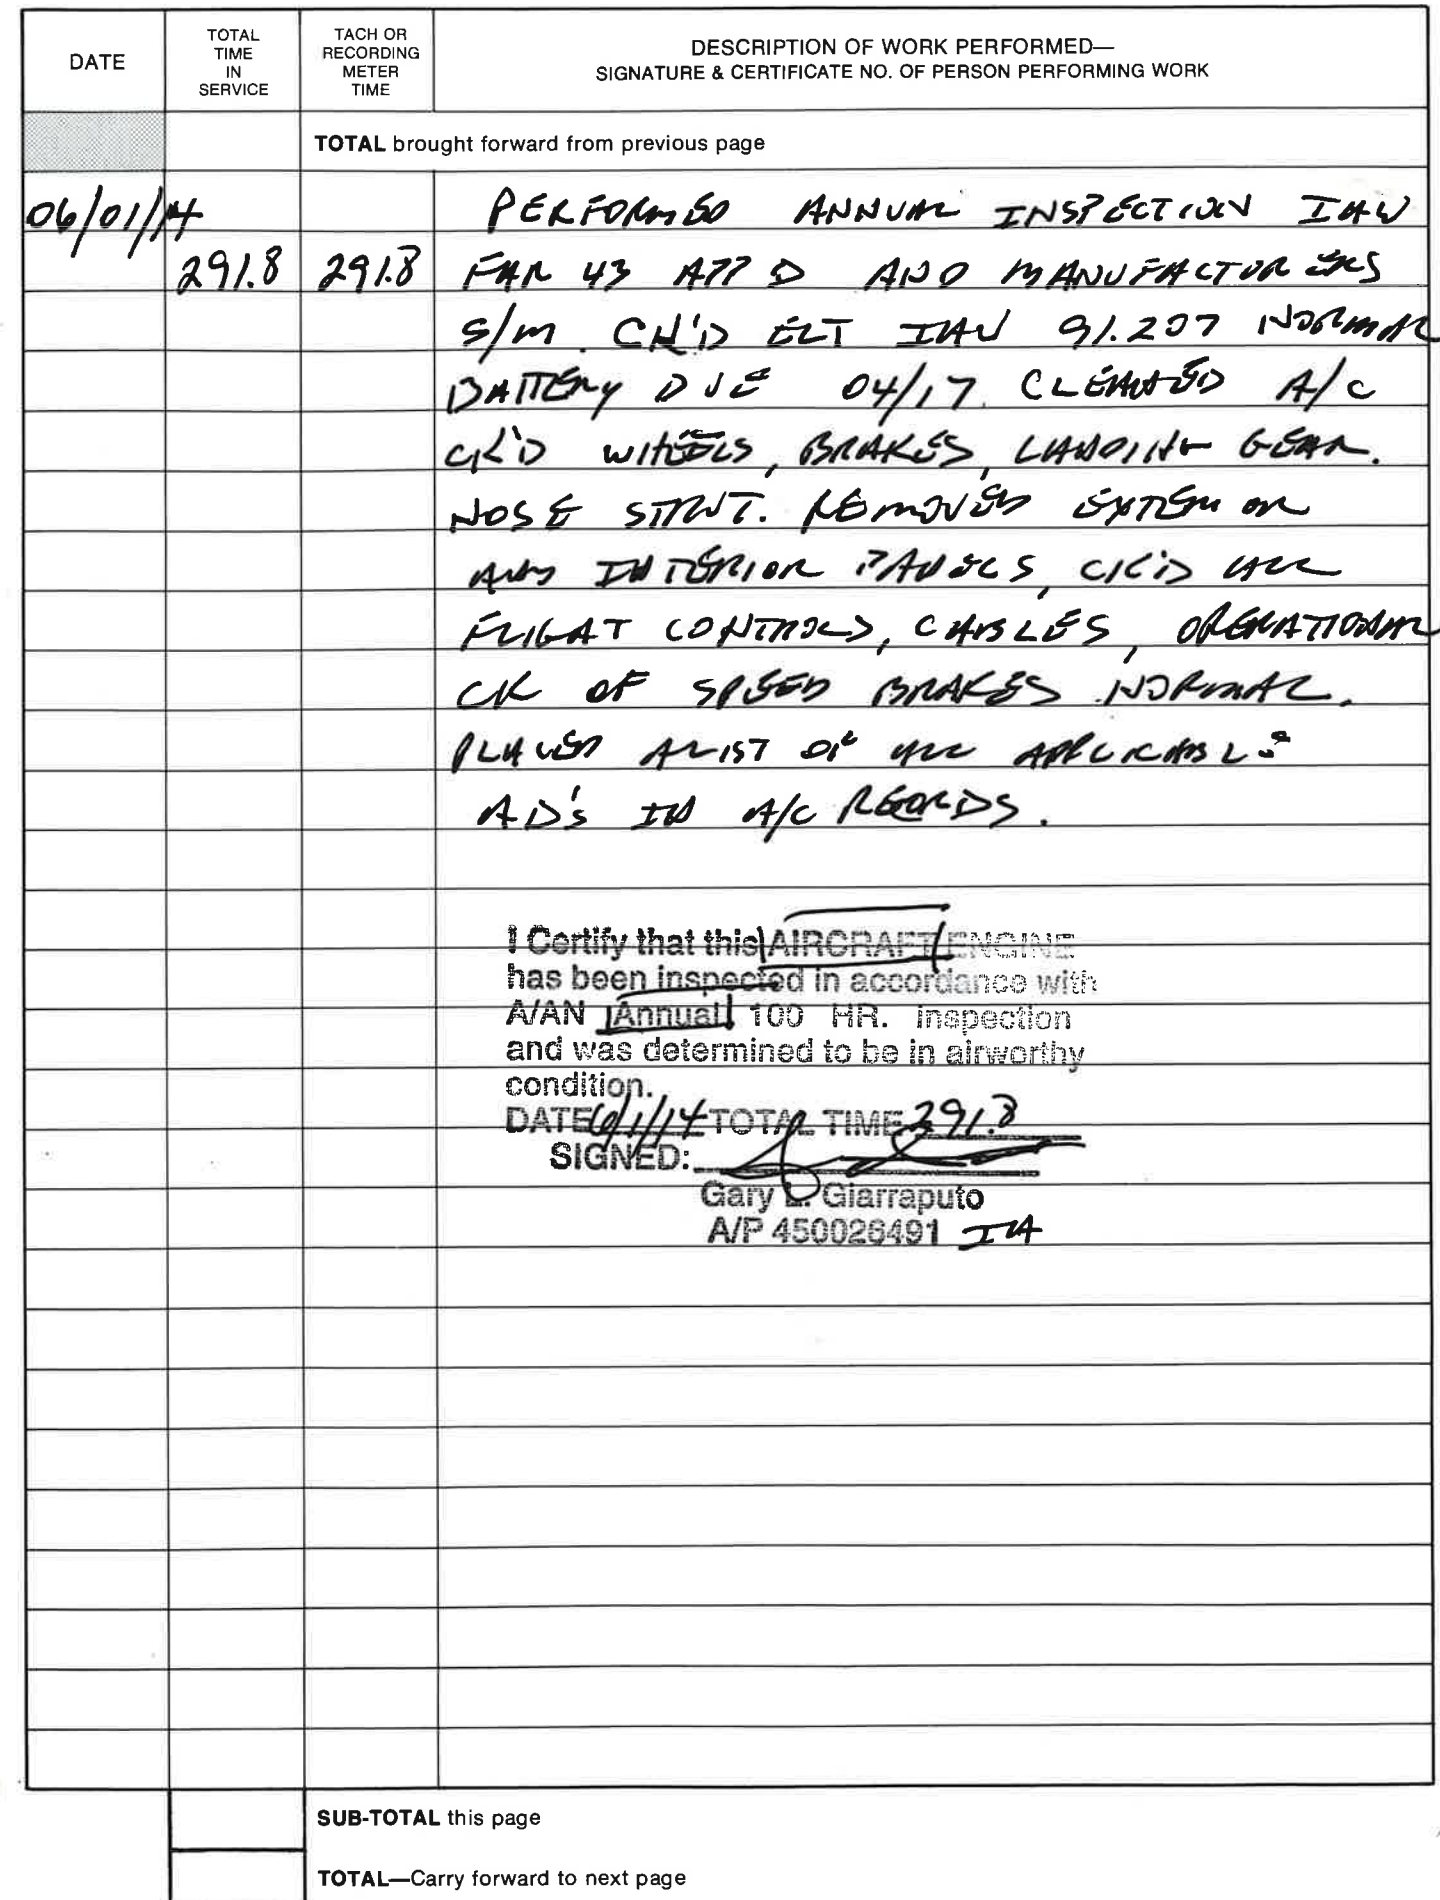 DATE
TOTAL
TIME
IN
SERVICE
TACH OR
RECORDING
METER
TIME
DESCRIPTION OF WORK PERFORMED—
SIGNATURE & CERTIFICATE NO. OF PERSON PERFORMING WORK
TOTAL brought forward from previous page
06/01/14 PERFORMED ANNUAL INSPECTION IAW
291.8 291.8 FAR 43 APP D AND MANUFACTORERS
S/M. CK'D ELT IAW 91.207 NORMAL
BATTERY DUE 04/17. CLEANED A/C
CK'D WHEELS, BRAKES, LANDING GEAR.
NOSE STRUT. REMOVED EXTERIOR
AND INTERIOR PANELS, CK'D ALL
FLIGHT CONTROLS, CABLES, OPERATIONAL
CK OF SPEED BRAKES NORMAL.
PLACED A LIST OF ALL APPLICABLE
AD's IN A/C RECORDS.
I Certify that this AIRCRAFT/ENGINE
has been inspected in accordance with
A/AN Annual 100 HR. inspection
and was determined to be in airworthy
condition.
DATE 6/1/14 TOTAL TIME 291.8
SIGNED:
Gary L. Giarraputo
A/P 450026491 IA
SUB-TOTAL this page
TOTAL—Carry forward to next page